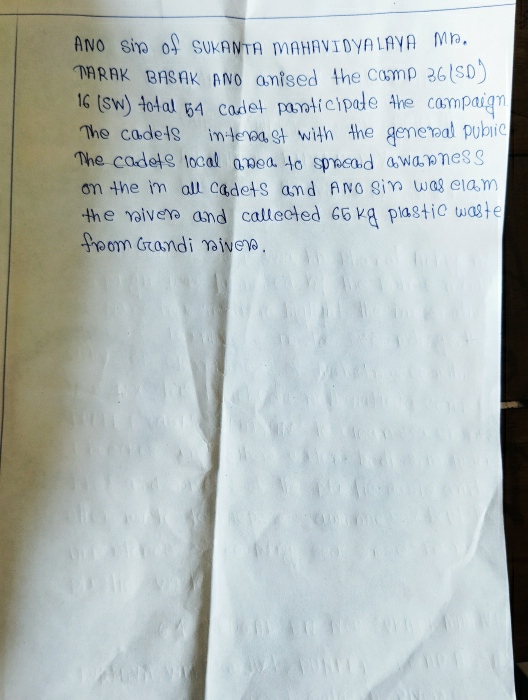 ANO sir of SUKANTA MAHAVIDYALAYA Mr.
TARAK BASAK ANO anised the camp 36(SD)
16 (SW) total 54 cadet participate the campaign
The cadets interast with the general public
The cadets local area to spread awarness
on the in all cadets and ANO sir was elam
the rivers and callected 65 kg plastic waste
from Grandi rivers.